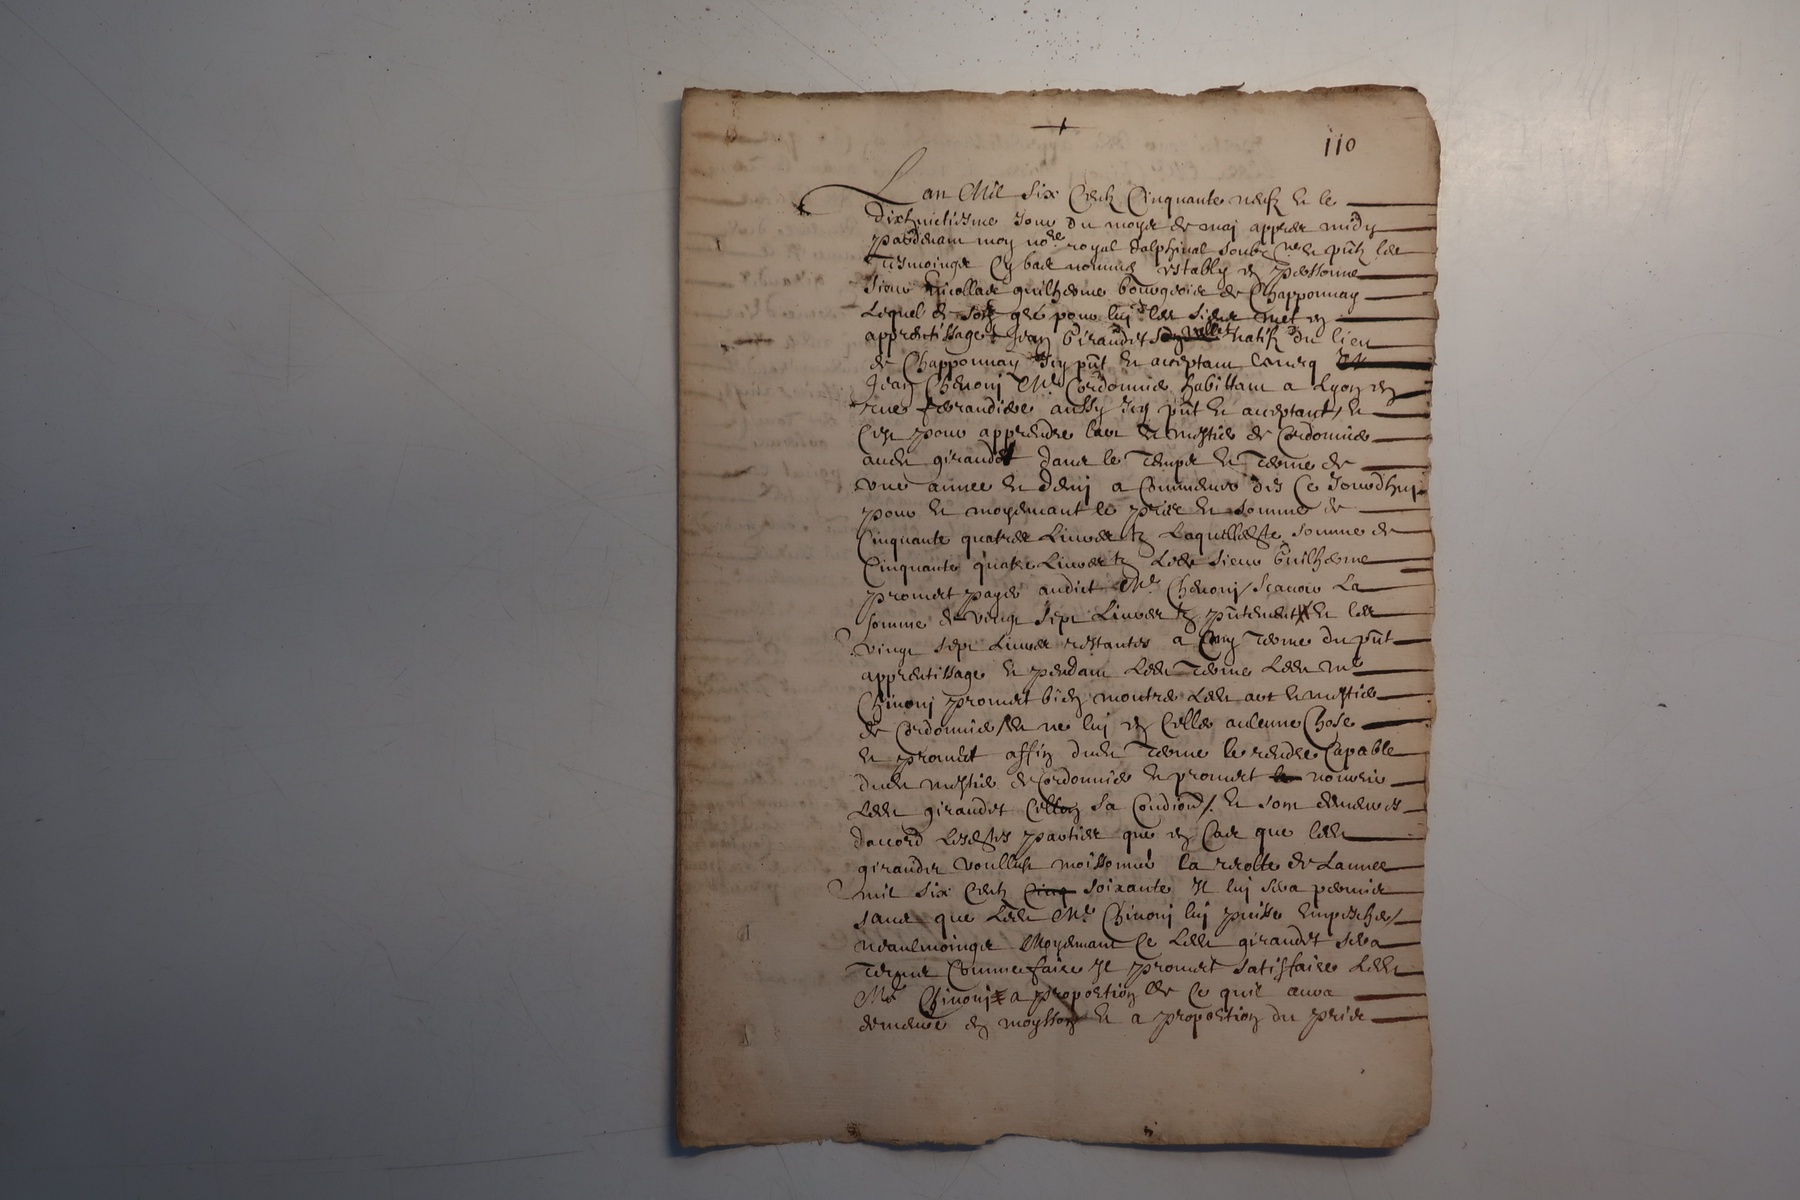 110
Lan Mil six Centz Cinquante neuf et le
dixhuictiesme Jour du moys de may appres midy
pardevant moy nore royal dalphinal soubzne et pntz les
Tesmoings Cy bas nommes estably en personne
Sieur Nicollas guilherme bourgeois de Chapponnay
Lequel de son gré pour luy les siens met en
apprentissage Jean Giraudet natif du lieu
de Chapponnay Icy pnt et acceptant
Jean Chenonj Mre Cordonnier habittant a Lyon en
rue ferandiere aussy Icy pnt et acceptant, et
Cest pour apprendre lart et mestier de Cordonnier
audt giraudet dans le Temps et Terme de
une annee et demj a Commencer des Ce Jourdhuy
pour et moyenant le pris et somme de
Cinquante quatre Livres tz Laquelle somme de
Cinquante quatre Livres tz Ledt sieur Guilherme
promet payer audict Mre Chenonj / scavoir La
somme de vingt sept Livres tz pntement et les
vingt sept Livres restantes a Terme du pnt
apprentissage et pendant Ledt Terme Ledt Mre
Chinonj promet bien montrer Ledt art et mestier
de Cordonnier / et ne luj en Celler aulcune Chose
et promet affin dudt Terme le rendre Capable
dudt mestier de Cordonnier et promet nourrir
Ledt giraudet sa Condion / et sont demeures
daccord Lesdtes parties que en Cas que ledt
giraudet voullut moissonner la recolte de Lannee
mil six Centz soixante Il luj sera permis
sans que Ledt Mre Chinonj luj puisse Empescher /
neaulmoings Moyenant Ce Ledt giraudet sera
Tenu Comme faire Il promet satisfaire Ledt
Mre Chinonj a proportion de Ce quil aura
demeure en moysson et a proportion du pris